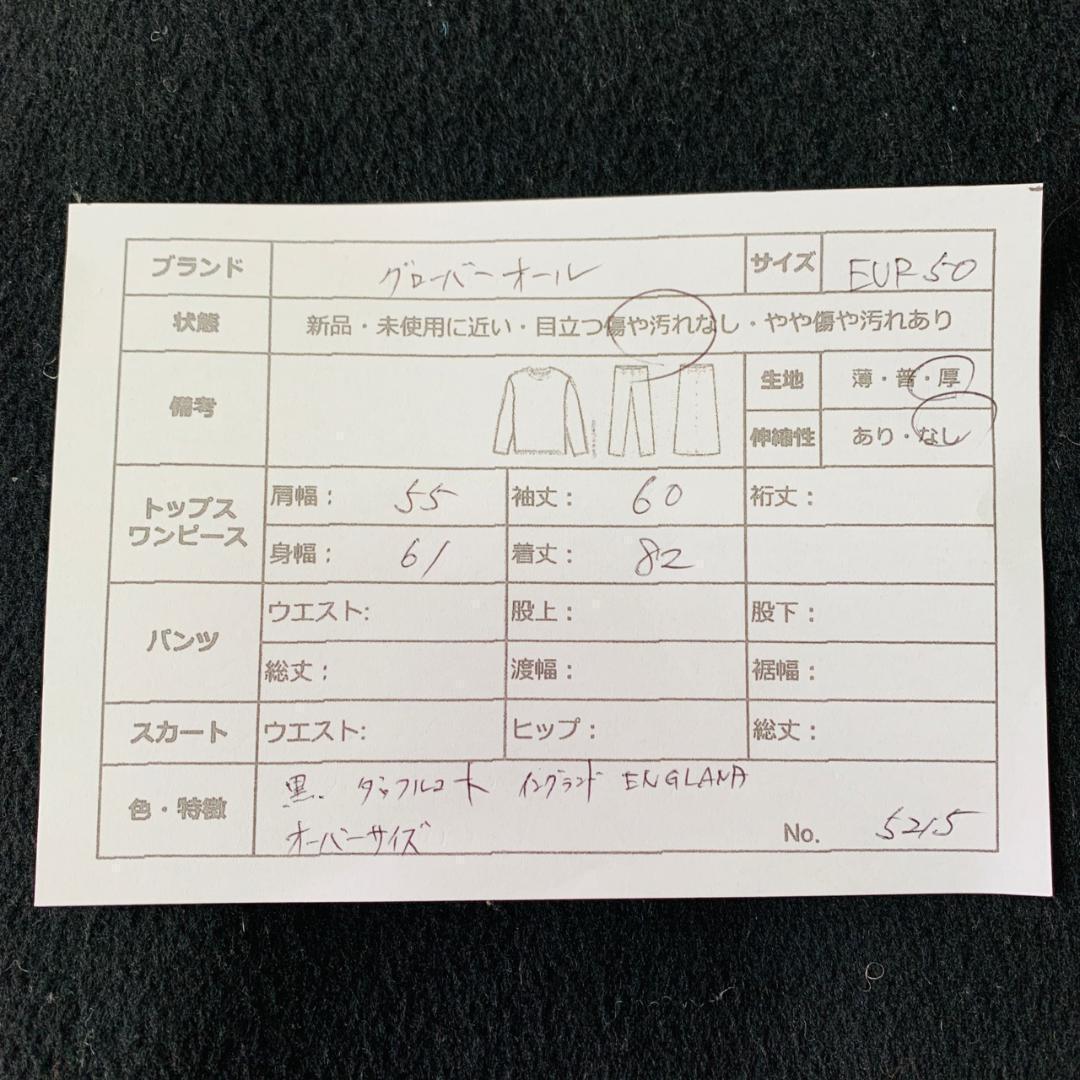 ブランド グローバーオール サイズ EUR50
状態 新品・未使用に近い・目立つ傷や汚れなし・やや傷や汚れあり
備考 生地 薄・普・厚
伸縮性 あり・なし
トップス ワンピース 肩幅: 55 袖丈: 60 裄丈:
身幅: 61 着丈: 82
パンツ ウエスト: 股上: 股下:
総丈; 渡幅: 裾幅:
スカート ウエスト: ヒップ: 総丈:
色・特徴 黒. ダッフルコート イングランド ENGLAND
オーバーサイズ No. 5215